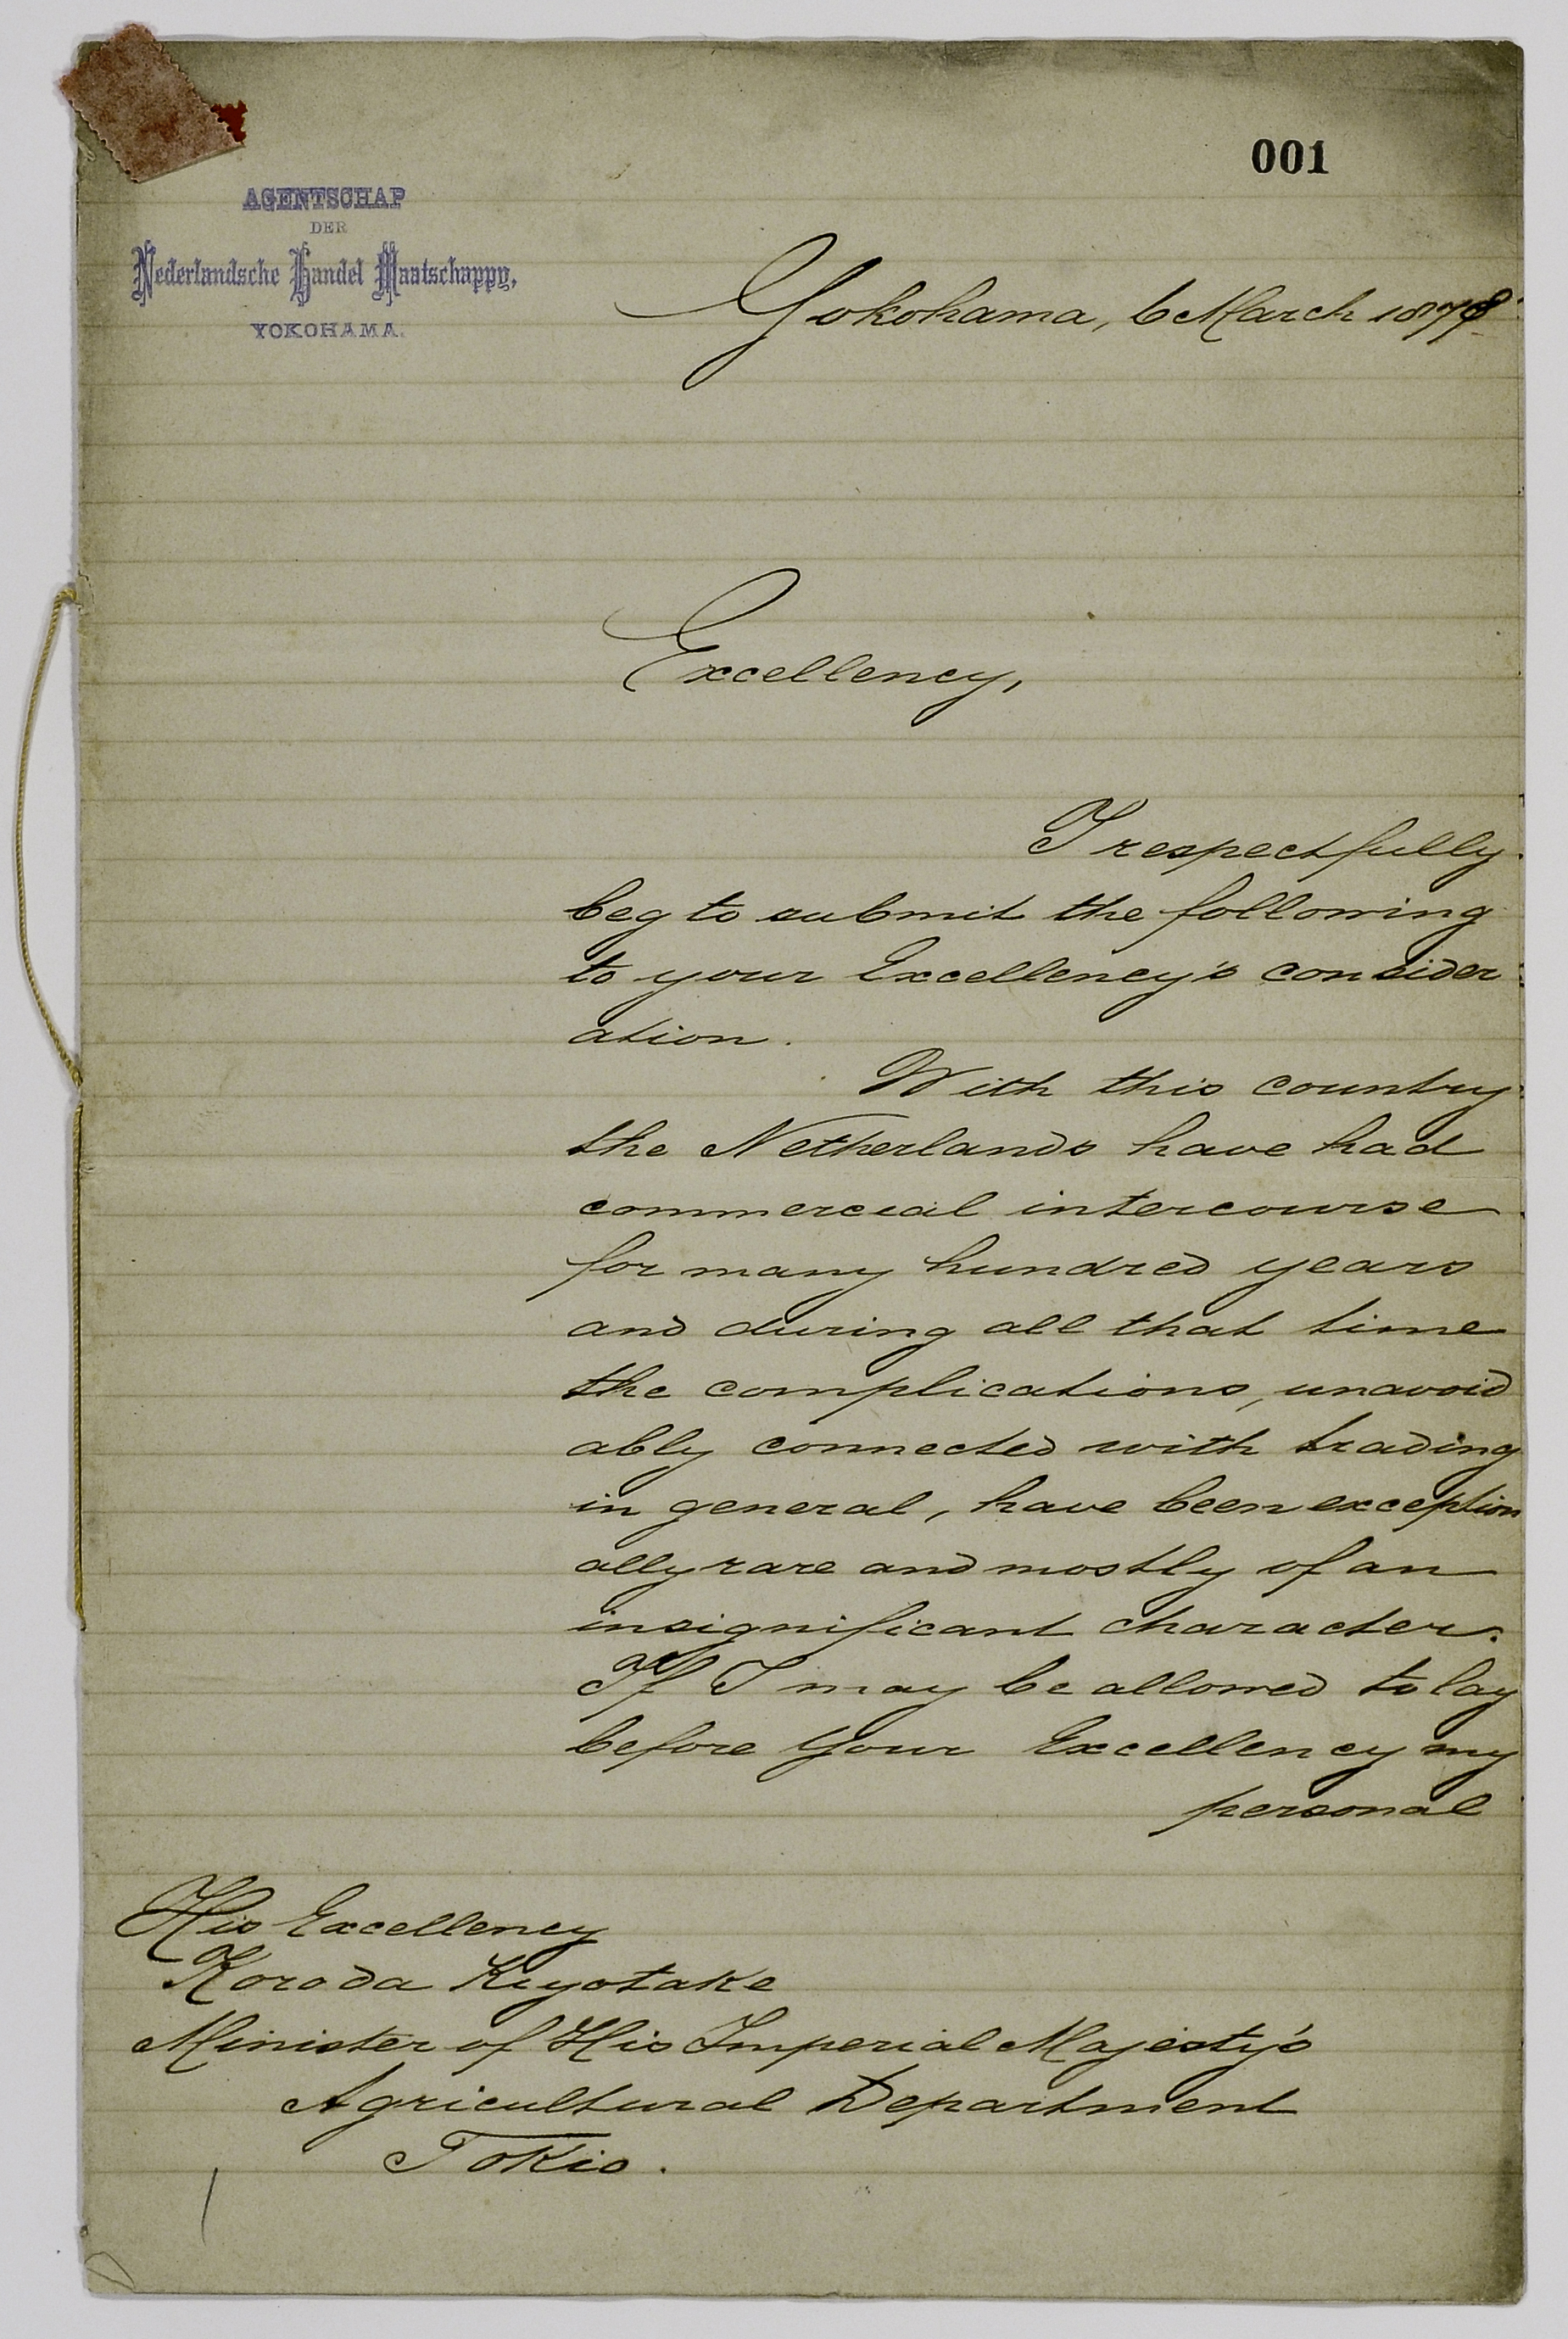 001
AGENTSCHAP
DER
Nederlandsche Handel Maatschappy,
YOKOHAMA.
Yokohama, 6 March 1878
Excellency,
I respectfully
beg to submit the following
to your Excellency's consider
ation.
With this country
the Netherlands have had
commercial intercourse
for many hundred years
and during all that time
the complications, unavoid
ably connected with trading
in general, have been exception
ally rare and mostly of an
insignificant character.
If I may be allowed to lay
before Your Excellency my
personal
His Excellency
Koroda Kiyotake
Minister of His Imperial Majesty's
Agricultural Department
Tokio.